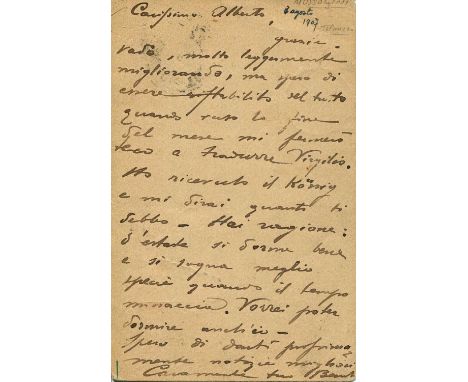 Carissimo Alberto,
3 agosto
1907
grazie.
Vado, molto leggermente
migliorando, ma spero di
essere ristabilito del tutto
quando verso la fine
del mese mi fermerò
teco a tradurre Virgilio.
Ho ricevuto il König
e mi dirai quanto ti
debbo – Hai ragione:
d'estate si dorme bene
e si sogna meglio
specie quando il tempo
minaccia. Vorrei poter
dormire anch'io –
spero di darti prossima
mente notizie migliori
Caramente tuo